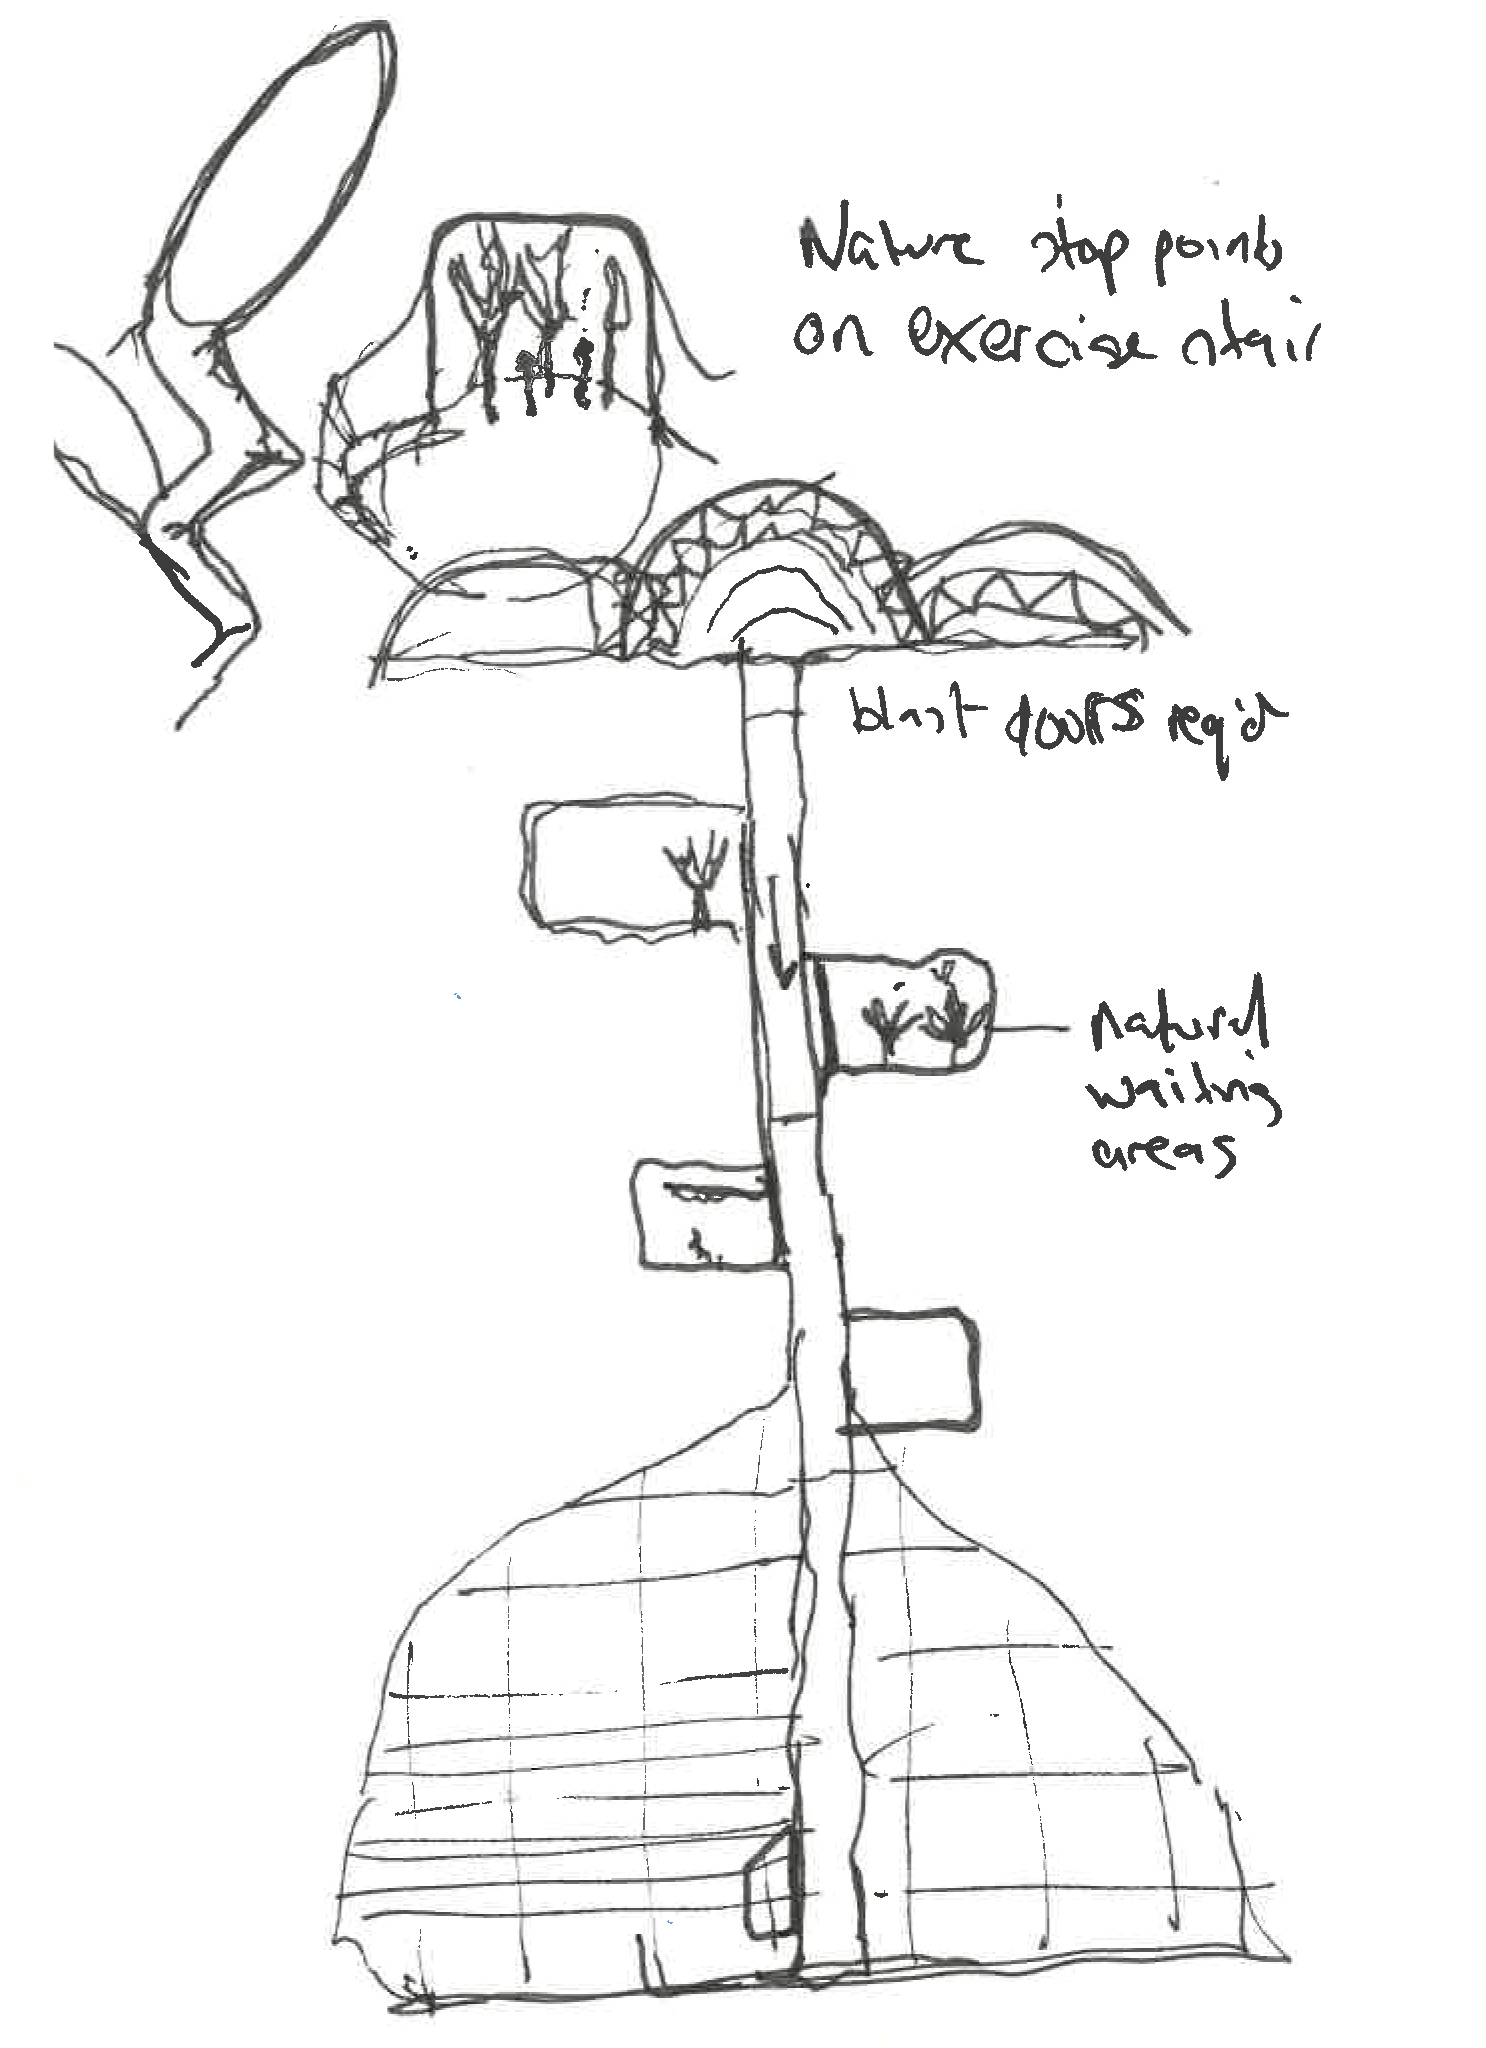 Nature stop points
on exercise stair
blast doors req'd
natural
waiting
areas